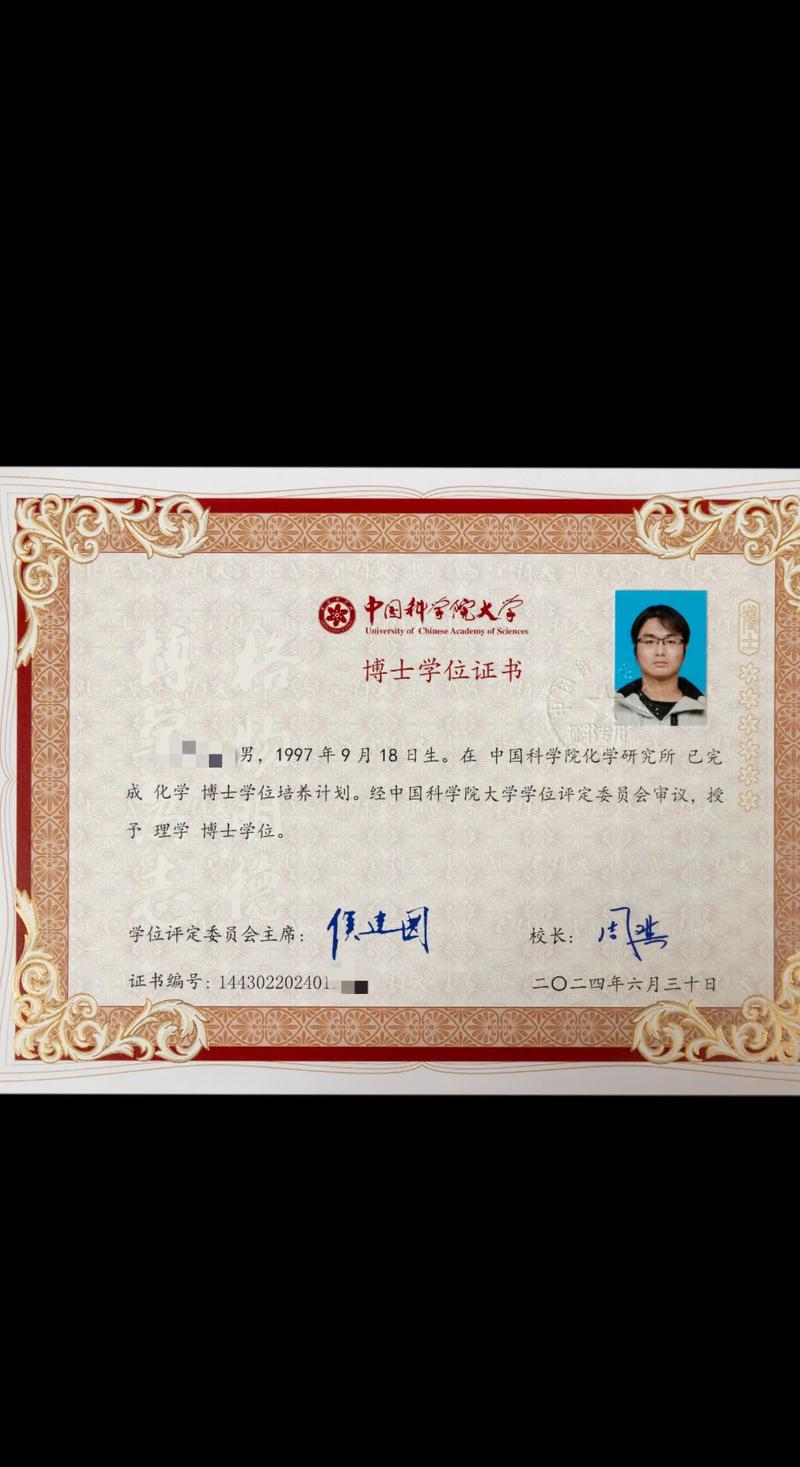 中国科学院大学
University of Chinese Academy of Sciences
博士学位证书
博士
男，1997年9月18日生。在 中国科学院化学研究所 已完
成 化学 博士学位培养计划。经中国科学院大学学位评定委员会审议，授
予 理学 博士学位。
学位评定委员会主席：侯建国 校长：周琪
证书编号：144302202401 二〇二四年六月三十日